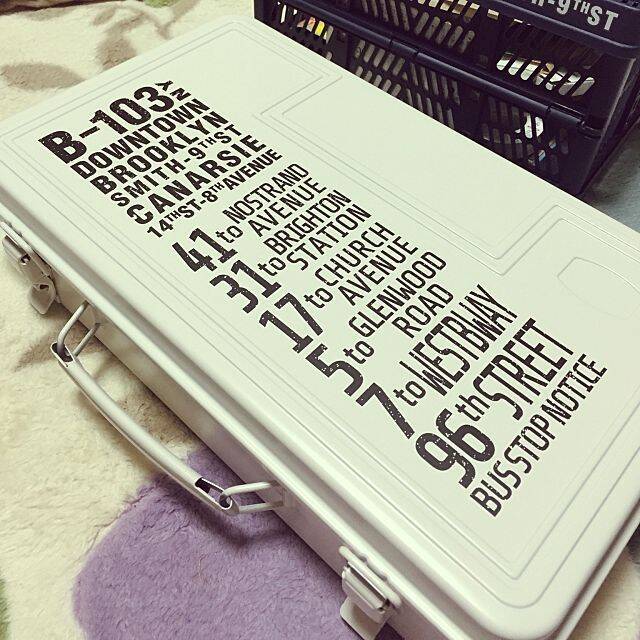 H-9TH ST
B-103 NY
DOWNTOWN
BROOKLYN
SMITH-9TH ST
CANARSIE
14TH ST-8TH AVENUE
41 to NOSTRAND
AVENUE
31 to BRIGHTON
STATION
17 to CHURCH
AVENUE
5 to GLENWOOD
ROAD
7 to WESTBWAY
96th STREET
BUS STOP NOTICE